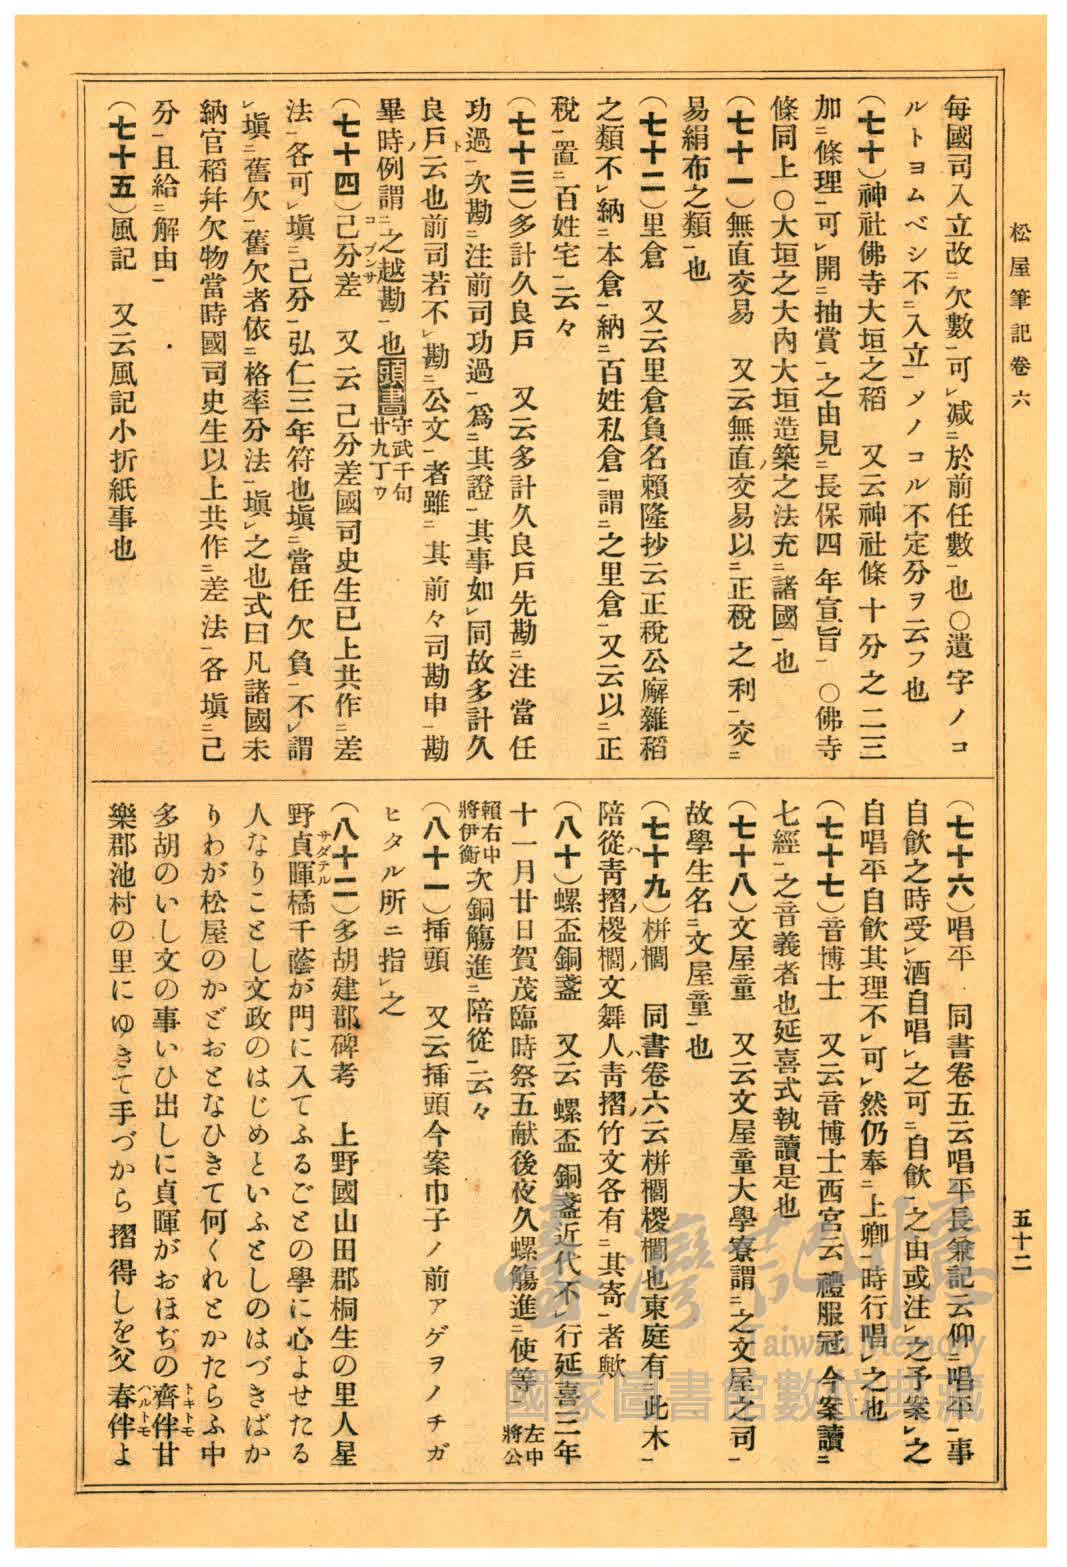 松屋筆記卷六
五十二
每國司入立改ニ欠數一可レ减ニ於前任數一也○遺字ノコ
ルトヨムベシ不ニ入立一メノコル不定分ヲ云フ也
(七十)神社佛寺大垣之稻　又云神社條十分之二三
加ニ條理一可レ開ニ抽賞一之由見ニ長保四年宣旨一○佛寺
條同上○大垣之大內大垣造築ノ之法充ニ諸國一也
(七十一)無直交易　又云無直交易以ニ正稅之利一交ニ
易絹布之類一也
(七十二)里倉　又云里倉負名賴隆抄云正稅公廨雜稻
之類不レ納ニ本倉一納ニ百姓私倉一謂ニ之里倉一又云以ニ正
稅一置ニ百姓宅一云々
(七十三)多計久良戶　又云多計久良戶先勘ニ注當任
功過一次勘ニ注前司功過一爲ニ其證一其事如レ同故多計久
良戶ト云也前司若不レ勘ニ公文一者雖ニ其前々司勘申一勘
畢時例謂ニ之越勘一也頭書守武千句廿九丁ウ
(七十四)己分差コブンサ　又云己分差國司史生已上共作ニ差
法一各可レ塡ニ己分一弘仁三年符也塡ニ當任欠負一不レ謂
レ塡ニ舊欠一舊欠者依ニ格率分法一塡レ之也式曰凡諸國未
納官稻幷欠物當時國司史生以上共作ニ差法一各塡ニ己
分一且給ニ解由一
(七十五)風記　又云風記小折紙事也
(七十六)唱平　同書卷五云唱平長兼記云仰ニ唱平一事
自飮之時受レ酒自唱レ之可ニ自飮一之由或注レ之予案レ之
自唱平自飮其理不レ可レ然仍奉ニ上卿一時行唱レ之也
(七十七)音博士　又云音博士西宮云禮服冠今案讀ニ
七經一之音義者也延喜式執讀是也
(七十八)文屋童　又云文屋童大學寮謂ニ之文屋之司一
故學生名ニ文屋童一也
(七十九)栟櫚　同書卷六云栟櫚椶櫚也東庭有ニ此木一
陪從ハ靑摺ノ椶櫚ノ文舞人ハ靑摺ノ竹文各有ニ其寄一者歟
(八十)螺盃銅盞　又云螺盃銅盞近代不レ行延喜三年
十一月廿日賀茂臨時祭五献後夜久螺觴進ニ使等一左中將公
賴右中將伊衡次銅觴進ニ陪從一云々
(八十一)揷頭　又云揷頭今案巾子ノ前アゲヲノチガ
ヒタル所ニ指レ之
(八十二)多胡建郡碑考　上野國山田郡桐生の里人星
野貞暉サダテル橘千蔭が門に入てふるごとの學に心よせたる
人なりことし文政のはじめといふとしのはづきばか
りわが松屋のかどおとなひきて何くれとかたらふ中
多胡のいし文の事いひ出しに貞暉がおほぢの齊伴トキトモ甘
樂郡池村の里にゆきて手づから摺得しを父春伴ハルトモよ
臺灣記憶
Taiwan Memory
國家圖書館數位典藏